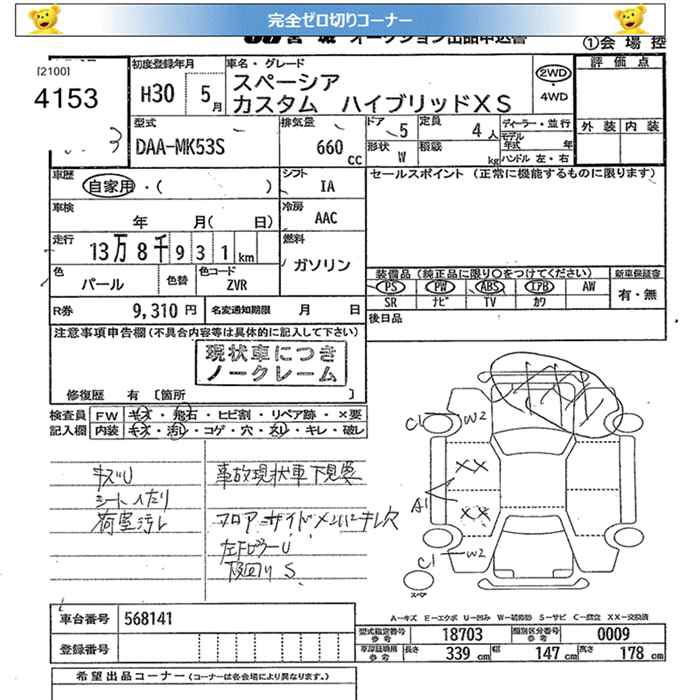 完全ゼロ切りコーナー
JU宮城 オークション出品申込書
①会場控
[2100]
4153
3
初度登録年月
H30 5月
車名・グレード
スペーシア
カスタム ハイブリッドXS
2WD
・
4WD
評価点
外装 内装
型式
DAA-MK53S
排気量
660 cc
ドア 5
定員 4人
形状 W
積載 kg
ディーラー・並行
モデル年式 年
ハンドル 左・右
車歴
自家用・( )
シフト
IA
セールスポイント (正常に機能するものに限ります)
車検
年 月( 日)
冷房
AAC
走行
13万8千931km
燃料
ガソリン
色
パール
色替
色コード
ZVR
装備品 (純正品に限り○をつけてください)
新車保証書
PS PW ABS エアB AW
有・無
SR ナビ TV カワ
R券 9,310円
名変通知期限 月 日
後日品
注意事項申告欄 (不具合内容等は具体的に記入して下さい)
現状車につき
ノークレーム
修復歴 有 [箇所 ]
検査員 FW キズ・飛石・ヒビ割・リペア跡・×要
記入欄 内装 キズ・汚レ・コゲ・穴・スレ・キレ・破レ
キズU
シートヘたり
荷室汚レ
事故現状車下見要
フロアーサイドメンバーキレ欠
左ドミラーU
下回り S
C1
W2
XX
XX
A1
XX
C1
W2
スペア
A−キズ E−エクボ U−凹み W−補修跡 S−サビ C−腐食 XX−交換済
車台番号 568141
登録番号
型式指定番号
参考
18703
類別区分番号
参考
0009
車庫証明用
参考
長さ 339cm 幅 147cm 高さ 178cm
希望出品コーナー (コーナーは各会場により異なります。)